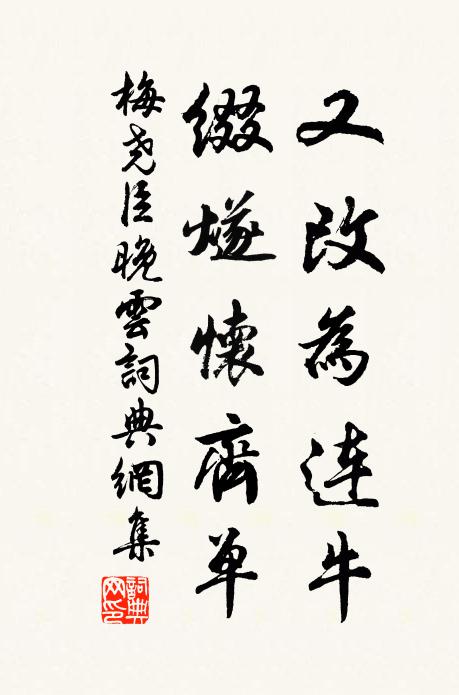 又改為連牛
綴燧懷齊單
梅堯臣晚雲詞典網集
詞典网印